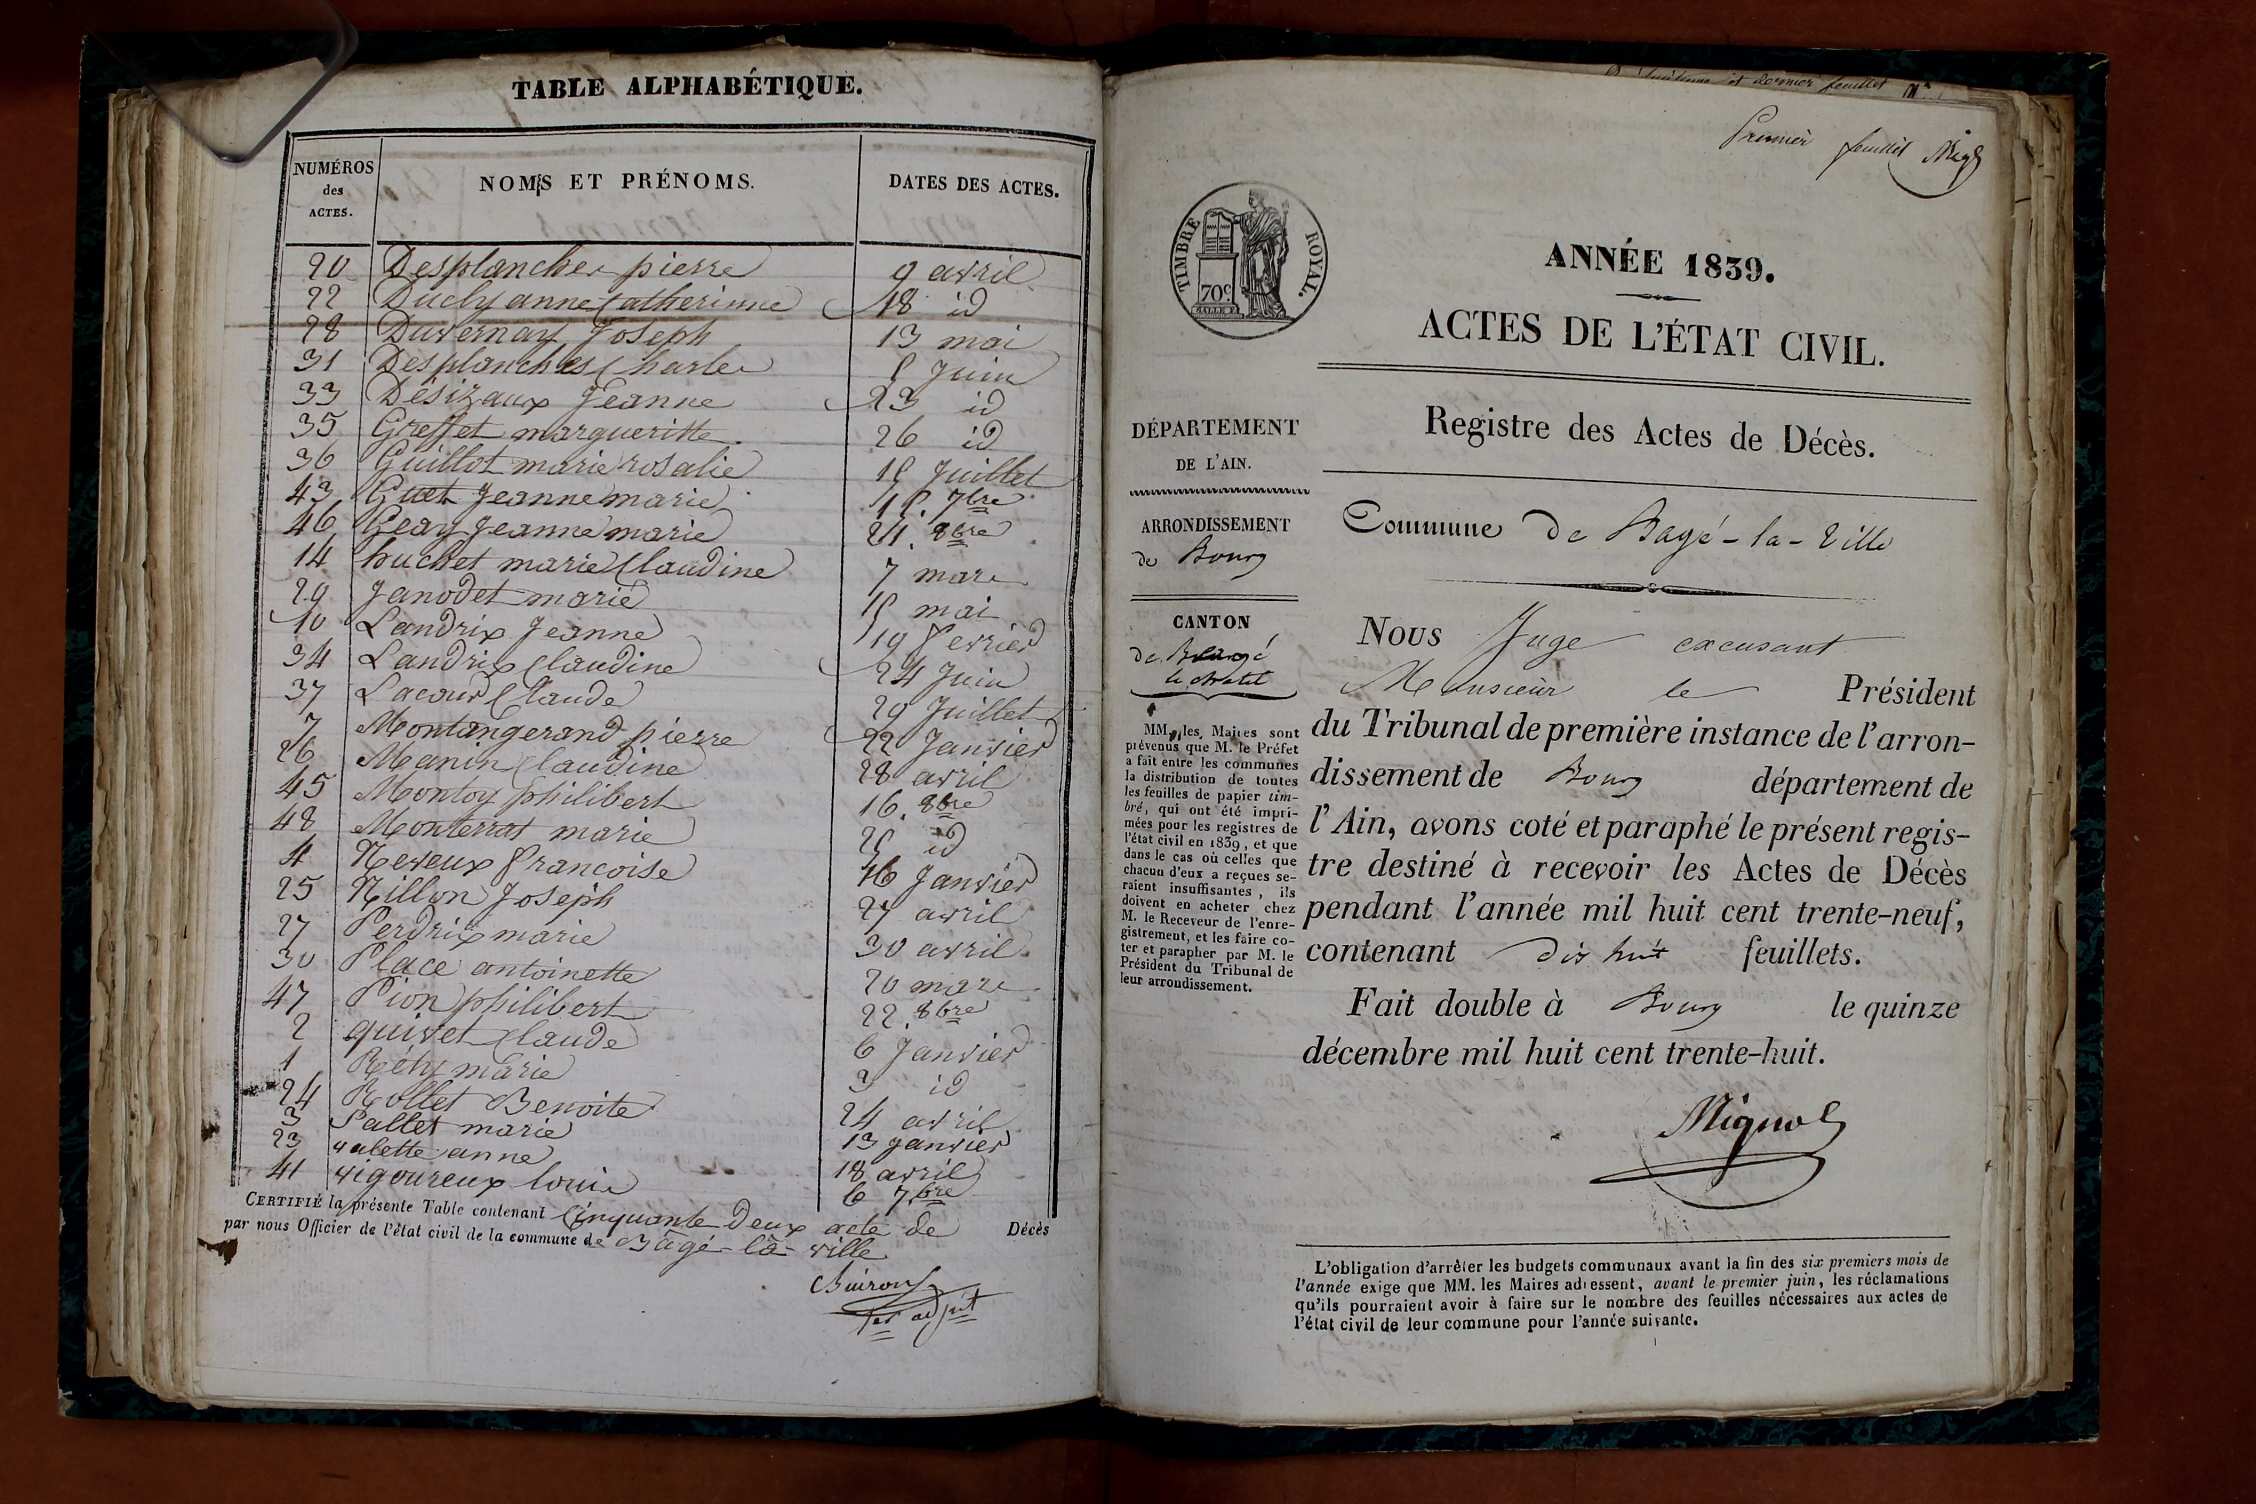 TABLE ALPHABÉTIQUE.
NUMÉROS des ACTES. NOMS ET PRÉNOMS. DATES DES ACTES.
20 Desplanches pierre 9 avril
22 Ducly anne Catherinne 18 id
28 Duvernay Joseph 13 mai
31 Desplanches Charles 5 Juin
33 Désizaux Jeanne 23 id
35 Greffet margueritte 26 id
36 Guillot marie rosalie 15 Juillet
43 Guet Jeanne marie 15. 7bre
46 Geay Jeanne marie 21. 8bre
14 huchet marie Claudine 7 mars
29 Janodet marie 15 mai
10 Landrix Jeanne 19 Fevrier
34 Landrix Claudine 24 Juin
37 Lacour Claude 29 Juillet
7 Montangerand pierre 22 Janvier
26 Manin Claudine 28 avril
45 Montoy philibert 16. 8bre
48 Monterrat marie 25 id
4 Neveux francoise 16 Janvier
25 Nillon Joseph 27 avril
27 Perdrix marie 30 avril
30 Place antoinette 20 mars
47 Pion philibert 22. 8bre
2 quivet Claude 6 Janvier
1 Réty marie 3 id
24 Rollet Benoite 24 avril
3 Sallet marie 13 Janvier
23 valette anne 18 avril
41 vigoureux louis 6 7bre
CERTIFIÉ la présente Table contenant Cinquante deux acte de Décès
par nous Officier de l'état civil de la commune de Bâgé-la-ville
Buiron
1er adjoit
et dernier feuillet
Premier feuillet Mig
TIMBRE ROYAL.
70c.
ANNÉE 1839.
ACTES DE L'ÉTAT CIVIL.
Registre des Actes de Décès.
DÉPARTEMENT
DE L'AIN.
ARRONDISSEMENT
de Bourg
CANTON
de Baugé
le chatel
MM. les Maires sont
prévenus que M. le Préfet
a fait entre les communes
la distribution de toutes
les feuilles de papier tim-
bré, qui ont été impri-
mées pour les registres de
l'état civil en 1839, et que
dans le cas où celles que
chacun d'eux a reçues se-
raient insuffisantes, ils
doivent en acheter chez
M. le Receveur de l'enre-
gistrement, et les faire co-
ter et parapher par M. le
Président du Tribunal de
leur arrondissement.
Commune de Bagé-la-Ville
NOUS Juge excusant
Monsieur le Président
du Tribunal de première instance de l'arron-
dissement de Bourg département de
l'Ain, avons coté et paraphé le présent regis-
tre destiné à recevoir les Actes de Décès
pendant l'année mil huit cent trente-neuf,
contenant dix huit feuillets.
Fait double à Bourg le quinze
décembre mil huit cent trente-huit.
Mignot
L'obligation d'arrêter les budgets communaux avant la fin des six premiers mois de
l'année exige que MM. les Maires adressent, avant le premier juin, les réclamations
qu'ils pourraient avoir à faire sur le nombre des feuilles nécessaires aux actes de
l'état civil de leur commune pour l'année suivante.